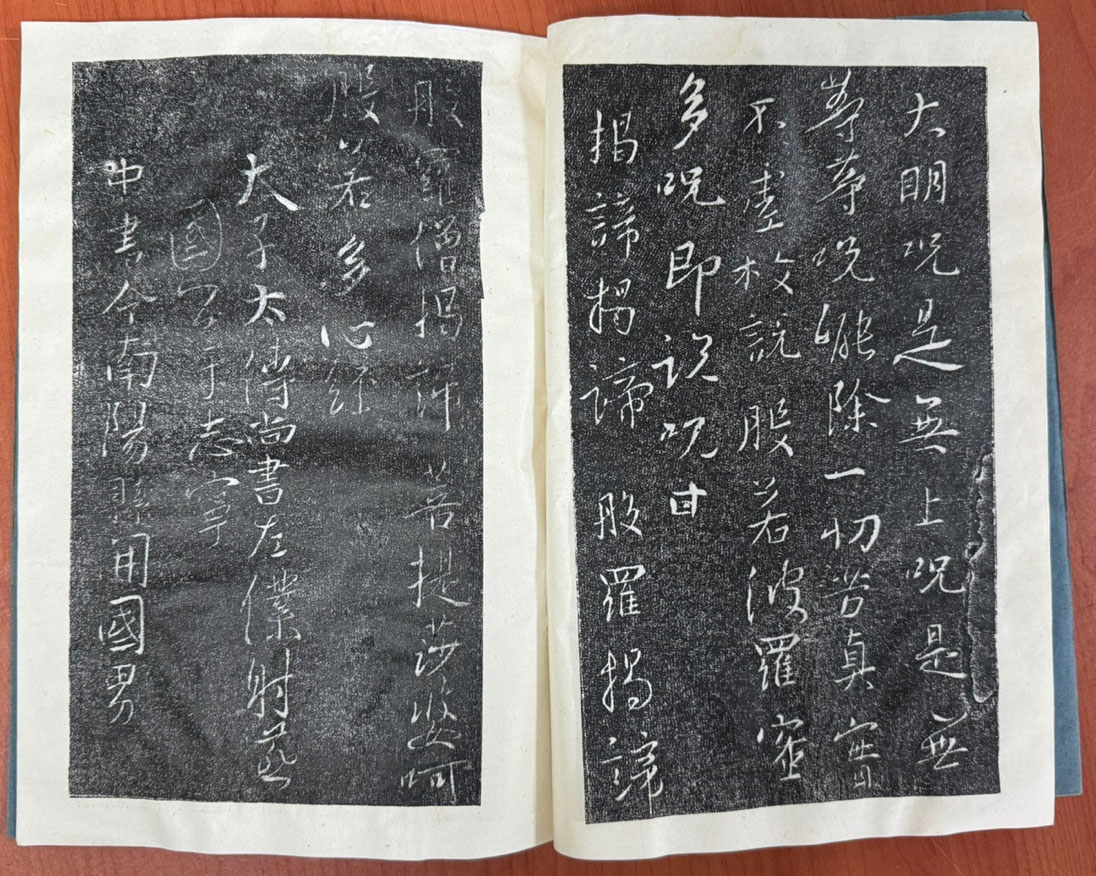 大明呪是無上呪是無
等等呪能除一切苦真實
不虛故說般若波羅蜜
多呪即說呪曰
揭諦揭諦 般羅揭諦
般羅僧揭諦 菩提莎婆呵
般若多心經
太子太傅尚書左僕射燕
國公于志寧
中書令南陽縣開國男